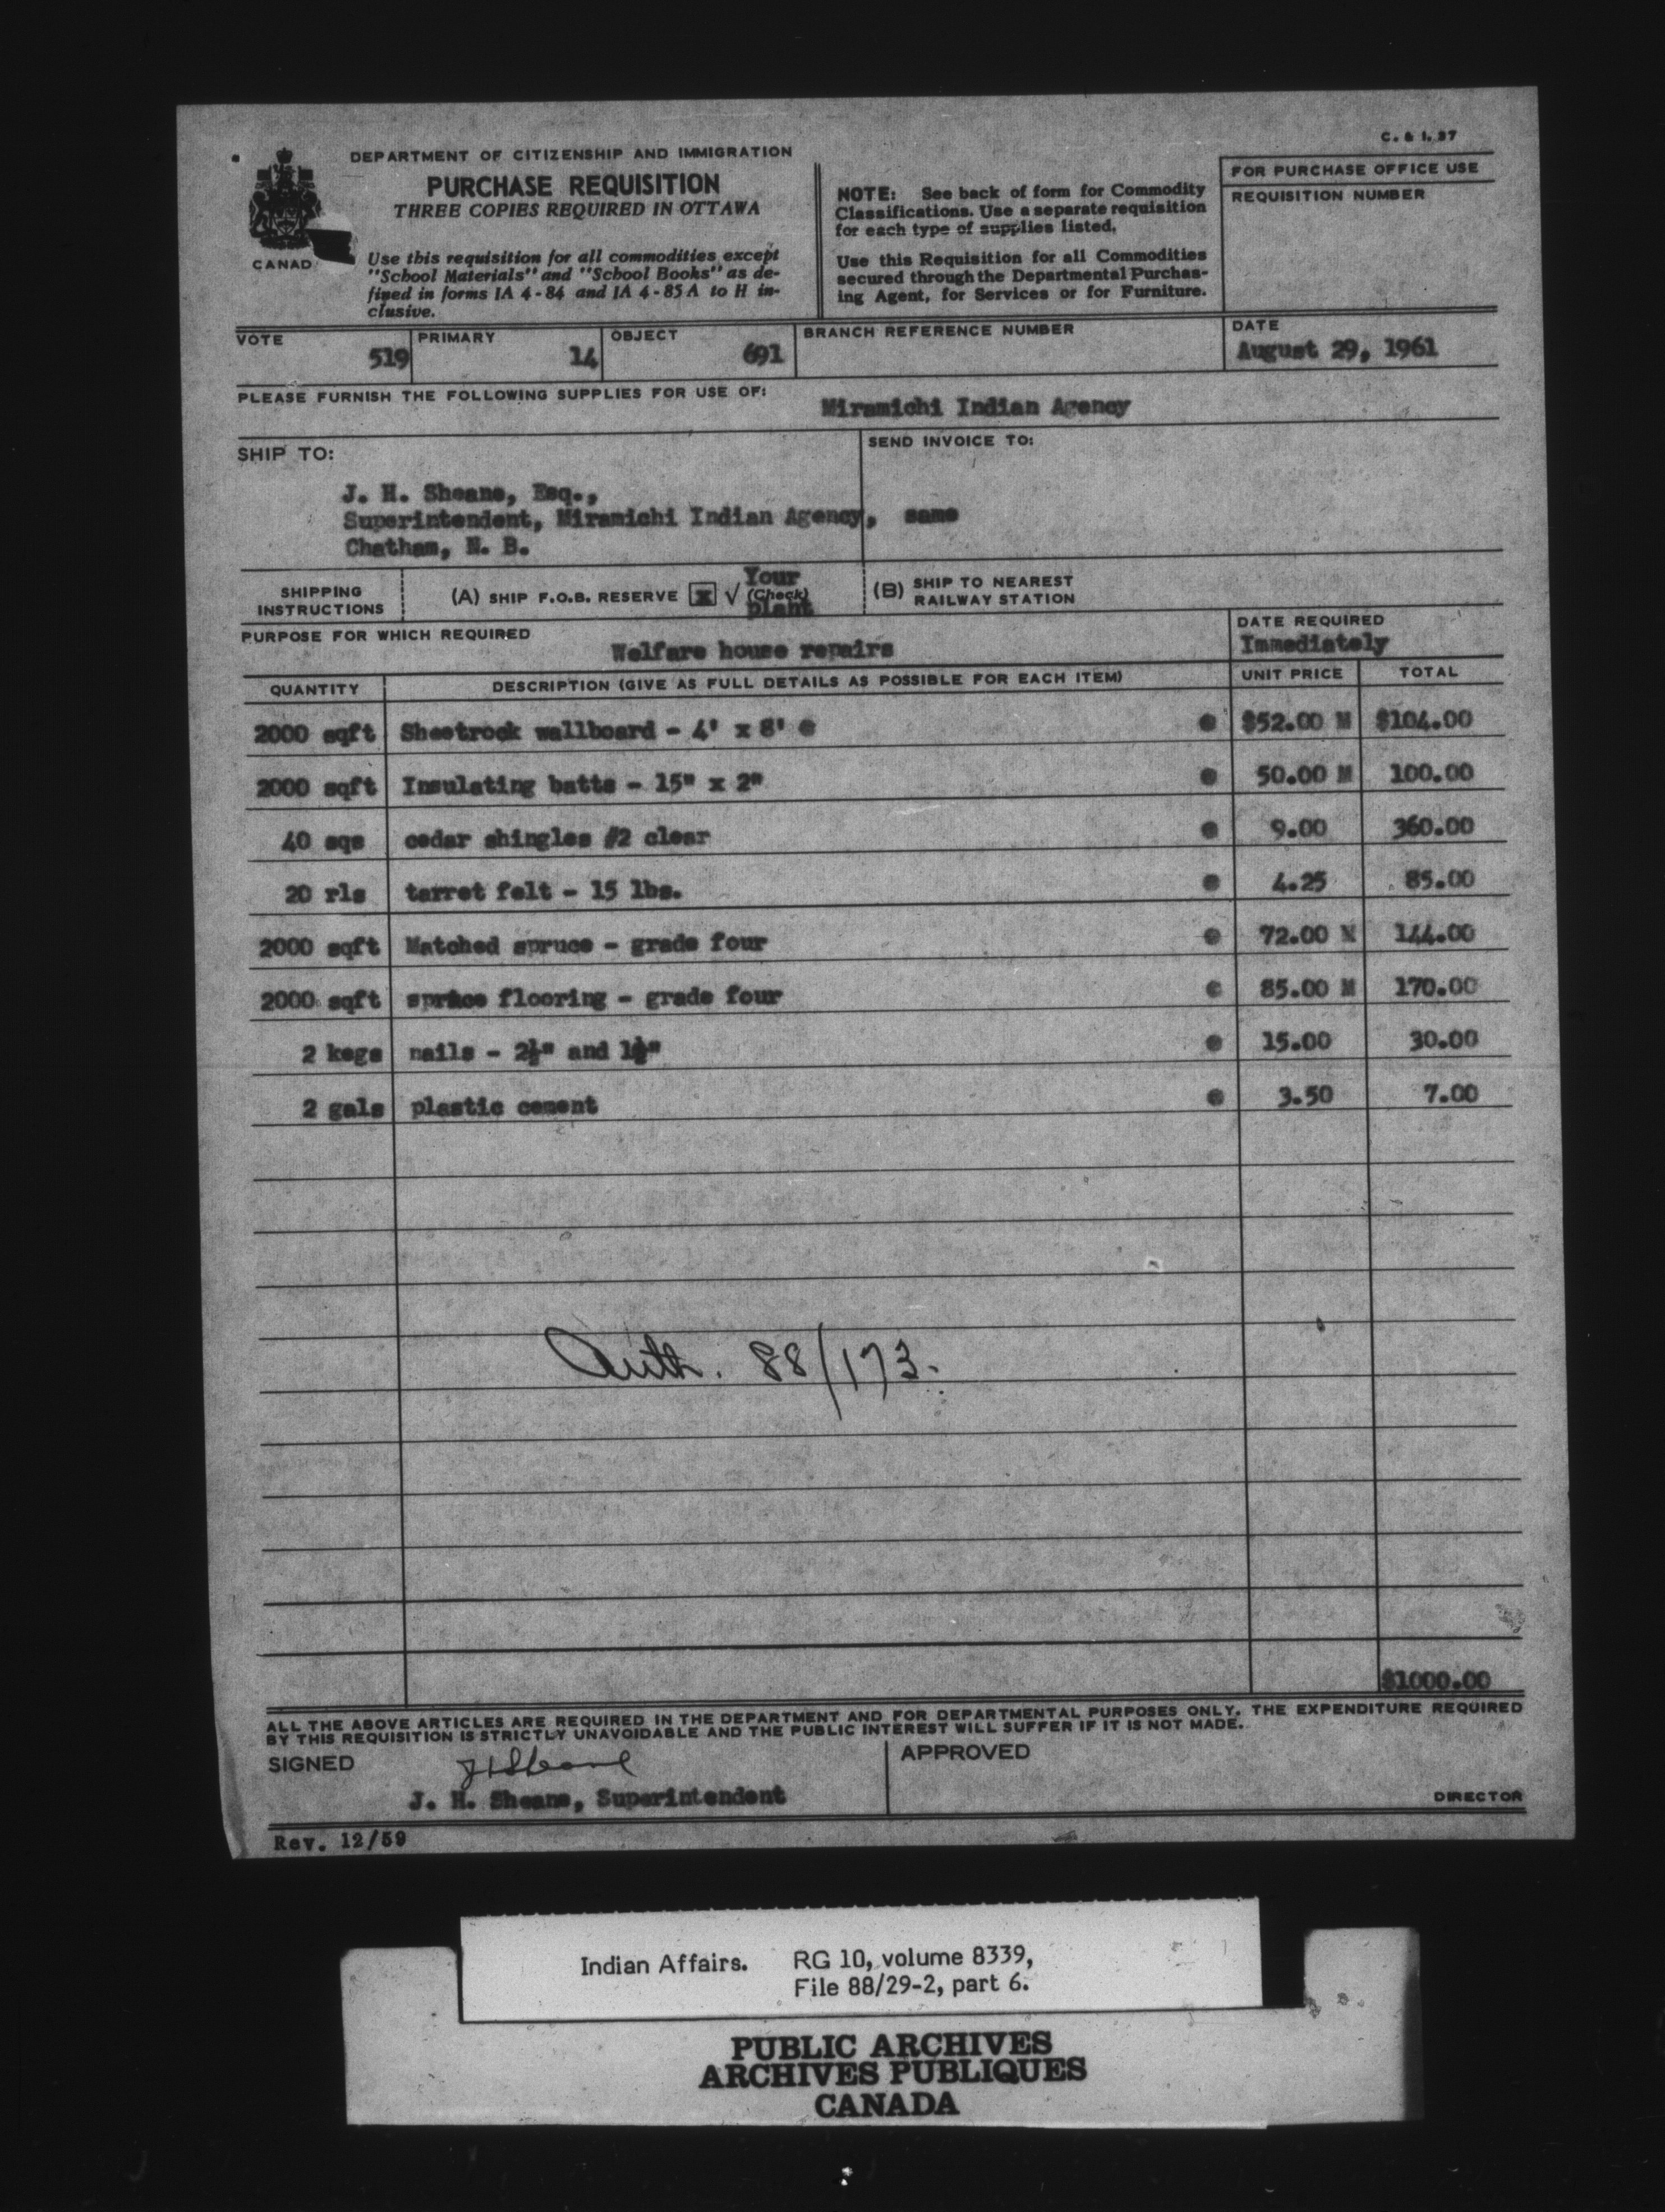 C. & I. 37
DEPARTMENT OF CITIZENSHIP AND IMMIGRATION
PURCHASE REQUISITION
THREE COPIES REQUIRED IN OTTAWA
CANAD
Use this requisition for all commodities except
"School Materials" and "School Books" as de-
fined in forms IA 4-84 and IA 4-85 A to H in-
clusive.
NOTE: See back of form for Commodity
Classifications. Use a separate requisition
for each type of supplies listed.
Use this Requisition for all Commodities
secured through the Departmental Purchas-
ing Agent, for Services or for Furniture.
FOR PURCHASE OFFICE USE
REQUISITION NUMBER
VOTE 519 PRIMARY 14 OBJECT 691 BRANCH REFERENCE NUMBER
DATE
August 29, 1961
PLEASE FURNISH THE FOLLOWING SUPPLIES FOR USE OF: Miramichi Indian Agency
SHIP TO:
J. H. Sheane, Esq.,
Superintendent, Miramichi Indian Agency,
Chatham, N. B.
SEND INVOICE TO:
same
SHIPPING
INSTRUCTIONS
(A) SHIP F.O.B. RESERVE x √ (Check)
Your
plant
(B) SHIP TO NEAREST
RAILWAY STATION
PURPOSE FOR WHICH REQUIRED
Welfare house repairs
DATE REQUIRED
Immediately
QUANTITY DESCRIPTION (GIVE AS FULL DETAILS AS POSSIBLE FOR EACH ITEM) UNIT PRICE TOTAL
2000 sqft Sheetrock wallboard - 4' x 8' @ @ $52.00 M $104.00
2000 sqft Insulating batts - 15" x 2" @ 50.00 M 100.00
40 sqs cedar shingles #2 clear @ 9.00 360.00
20 rls tarret felt - 15 lbs. @ 4.25 85.00
2000 sqft Matched spruce - grade four @ 72.00 M 144.00
2000 sqft spruce flooring - grade four @ 85.00 M 170.00
2 kegs nails - 2½" and 1½" @ 15.00 30.00
2 gals plastic cement @ 3.50 7.00
Auth. 88/173.
$1000.00
ALL THE ABOVE ARTICLES ARE REQUIRED IN THE DEPARTMENT AND FOR DEPARTMENTAL PURPOSES ONLY. THE EXPENDITURE REQUIRED
BY THIS REQUISITION IS STRICTLY UNAVOIDABLE AND THE PUBLIC INTEREST WILL SUFFER IF IT IS NOT MADE.
SIGNED
JHSheane
J. H. Sheane, Superintendent
APPROVED
DIRECTOR
Rev. 12/59
Indian Affairs. RG 10, volume 8339,
File 88/29-2, part 6.
PUBLIC ARCHIVES
ARCHIVES PUBLIQUES
CANADA